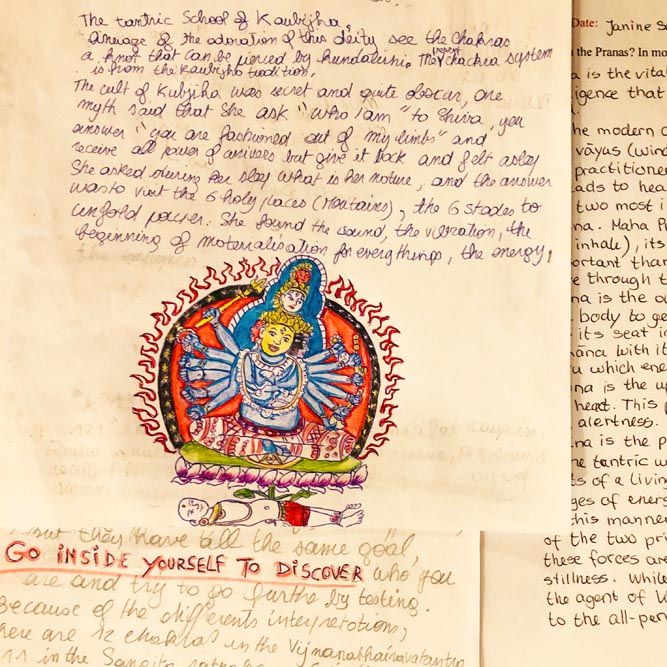 The tantric School of Kaubjha,
lineage of the adoration of this deity see the Chakras
a knot that can be pierced by kundalini. The present chackra system
is from the Kaubjha tradition.
The cult of Kubjika was secret and quite obscur, one
myth said that She ask "Who I am" to Shiva, you
answer "you are fashioned out of my limbs" and
receive all power of univers but give it back and felt aslay
She asked during her slay what is her nature, and the answer
was to visit the 6 holy places (Moutains), the 6 stades to
unfold power. She found the sound, the vibration, the
beginning of materialisation for everythings, the energy,
but they have all the same goal,
GO INSIDE YOURSELF TO DISCOVER who you
are and try to go further by testing.
Because of the differents interpretations,
there are 12 chakras in the Vijnanabhairavatantra
11 in the
Date: Janine
the Pranas? In mo
a is the vita
igence that
he modern
vāyus (wind
practitione
ads to hea
two most i
na. Maha P
inhale), its
ortant than
e through t
na is the
body to ge
its seat i
āna with it
u which ene
na is the u
heart. This
alertness.
na is the p
he tantric w
ts of a livin
ges of energ
this manner
of the two pri
these forces are
stillness. While
the agent of
to the all-per